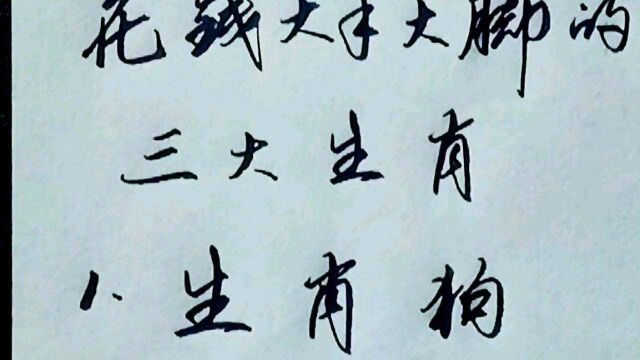 花钱大手大脚的
三大生肖
1.生肖狗